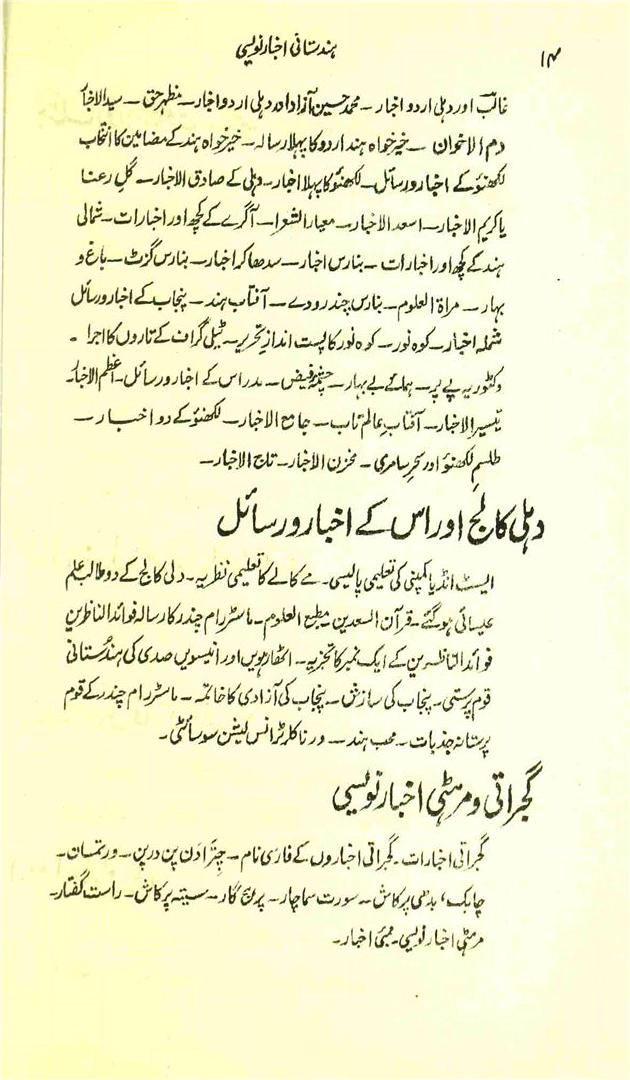 ۱۴
ہندستانی اخبار نویسی
غالبؔ اور دہلی اردو اخبار۔ محمد حسین آزاد اور دہلی اردو اخبار۔ مظہر حق۔ سید الاخبار
دم الاخوان۔ خیر خواہ ہند اردو کا پہلا رسالہ۔ خیر خواہ ہند کے مضامین کا انتخاب
لکھنؤ کے اخبار و رسائل۔ لکھنؤ کا پہلا اخبار۔ دہلی کے صادق الاخبار۔ گلِ رعنا
یا کریم الاخبار۔ اسعد الاخبار۔ معیار الشعرا۔ آگرے کے کچھ اور اخبارات۔ شمالی
ہند کے کچھ اور اخبارات۔ بنارس اخبار۔ سدھاکر اخبار۔ بنارس گزٹ۔ باغ و
بہار۔ مراۃ العلوم۔ بنارس چندرودے۔ آفتاب ہند۔ پنجاب کے اخبار و رسائل
شملہ اخبار۔ کوہ نور۔ کوہ نور کا پست اندازِ تحریر۔ ٹیلی گراف کے تاروں کا اجرا۔
وکٹوریہ پیپر۔ ہمائے بے بہار۔ چشمۂ فیض۔ مدراس کے اخبار و رسائل۔ اعظم الاخبار۔
تیسیر الاخبار۔ آفتابِ عالم تاب۔ جامع الاخبار۔ لکھنؤ کے دو اخبار۔
طلسمِ لکھنؤ اور سحرِ سامری۔ مخزن الاخبار۔ تاج الاخبار۔
دہلی کالج اور اس کے اخبار و رسائل
ایسٹ انڈیا کمپنی کی تعلیمی پالیسی۔ مے کالے کا تعلیمی نظریہ۔ دلی کالج کے دو طالب علم
عیسائی ہو گئے۔ قرآن السعدین۔ مطبع العلوم۔ ماسٹر رام چندر کا رسالہ فوائد الناظرین
فوائد الناظرین کے ایک نمبر کا تجزیہ۔ اٹھارہویں اور انیسویں صدی کی ہندُستانی
قوم پرستی۔ پنجاب کی سازش۔ پنجاب کی آزادی کا خاتمہ۔ ماسٹر رام چندر کے قوم
پرستانہ جذبات۔ محب ہند۔ ورناکلر ٹرانس لیشن سوسائٹی۔
گجراتی و مرہٹی اخبار نویسی
گجراتی اخبارات۔ گجراتی اخباروں کے فارسی نام۔ چترا دن پن درپن۔ ورتمان۔
چابک، بدھی پرکاش۔ سورت سماچار۔ پرہیج گار۔ سیتہ پرکاش۔ راست گفتار۔
مرہٹی اخبار نویسی۔ ممبئی اخبار۔